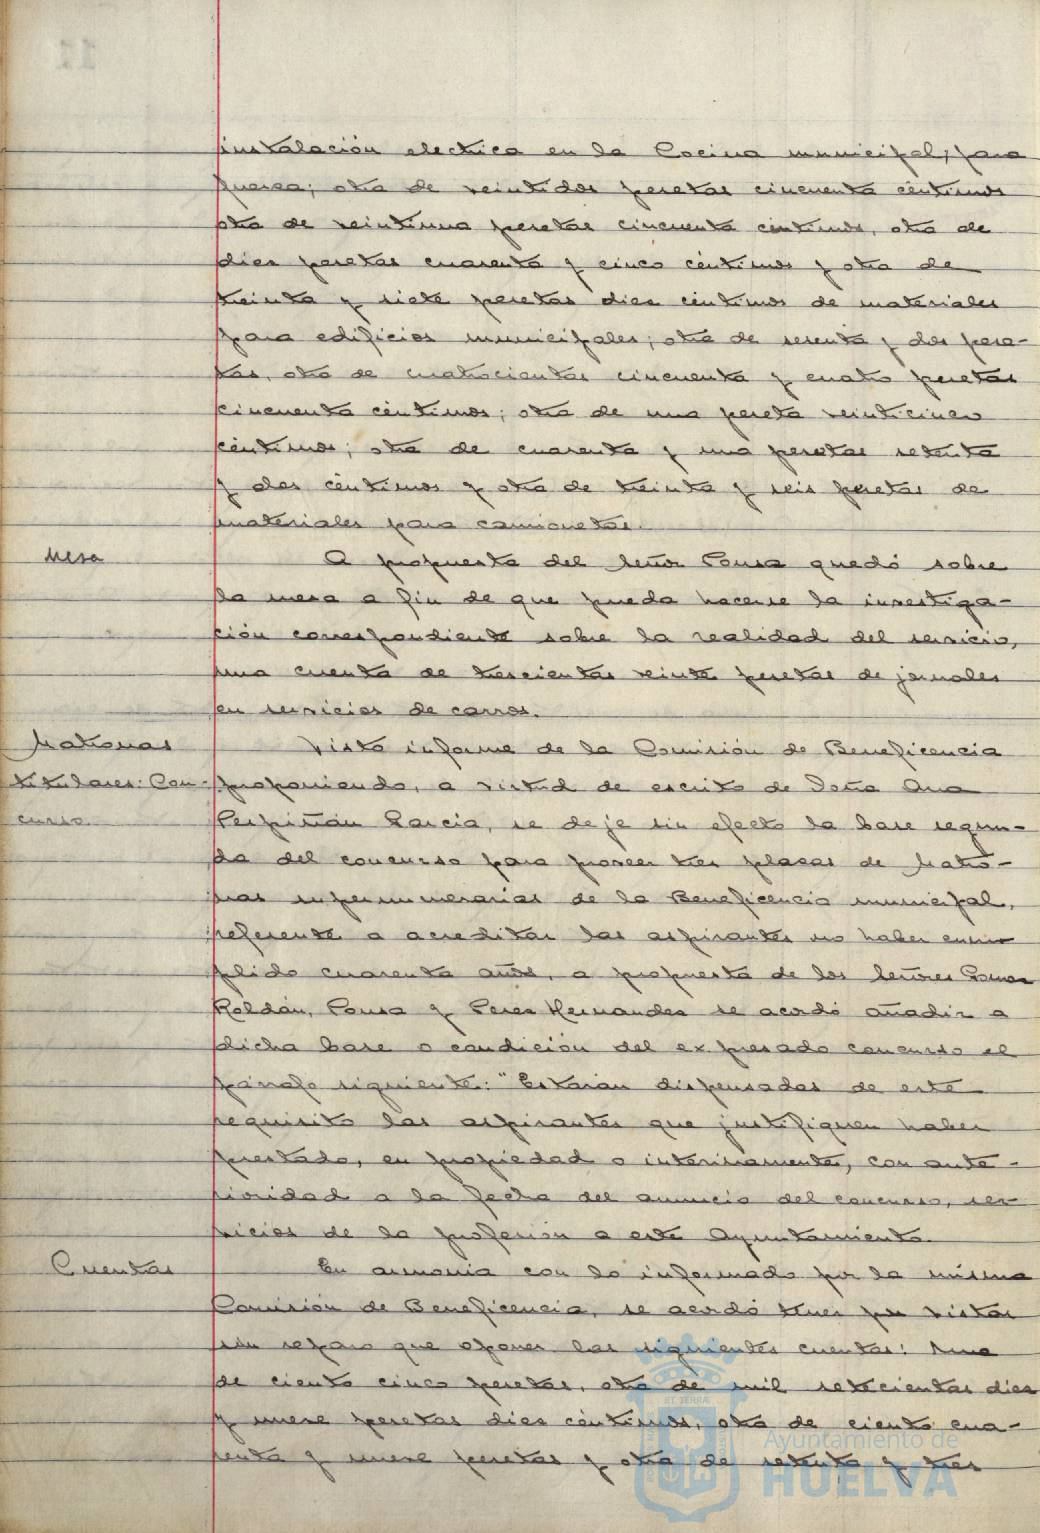 instalación electrica en la Cocina municipal, para
fuerza; otra de veintidos pesetas cincuenta céntimos
otra de veintiuna pesetas cincuenta céntimos, otra de
diez pesetas cuarenta y cinco céntimos y otra de
treinta y siete pesetas diez céntimos de materiales
para edificios municipales; otra de sesenta y dos pese-
tas, otra de cuatrocientas cincuenta y cuatro pesetas
cincuenta céntimos; otra de una peseta veinticinco
céntimos; otra de cuarenta y una pesetas setenta
y dos céntimos y otra de treinta y seis pesetas de
materiales para camionetas.
Mesa
A propuesta del Señor Ponsa quedó sobre
la mesa a fin de que pueda hacerse la investiga-
ción correspondiente sobre la realidad del servicio,
una cuenta de trescientas veinte pesetas de jornales
en servicios de carros.
Matronas
titulares: Con-
curso
Visto informe de la Comisión de Beneficencia
proponiendo, a virtud de escrito de Doña Ana
Perpiñán García, se deje sin efecto la base segun-
da del concurso para proveer tres plazas de Matro-
nas supernumerarias de la Beneficencia municipal,
referente a acreditar las aspirantes no haber cum-
plido cuarenta años, a propuesta de los Señores
Roldán, Ponsa y Perez Hernandez se acordó añadir a
dicha base o condición del expresado concurso el
párrafo siguiente: "Estarán dispensadas de este
requisito las aspirantes que justifiquen haber
prestado, en propiedad o interinamente, con ante-
rioridad a la fecha del anuncio del concurso, ser-
vicios de la profesión a este Ayuntamiento.
Cuentas
En armonia con lo informado por la misma
Comisión de Beneficencia, se acordó tener por vistas
sin reparo que oponer las siguientes cuentas: Una
de ciento cinco pesetas, otra de mil setecientas diez
y nueve pesetas diez céntimos, otra de ciento cua-
renta y nueve pesetas y otra de setenta y tres
Ayuntamiento de
HUELVA